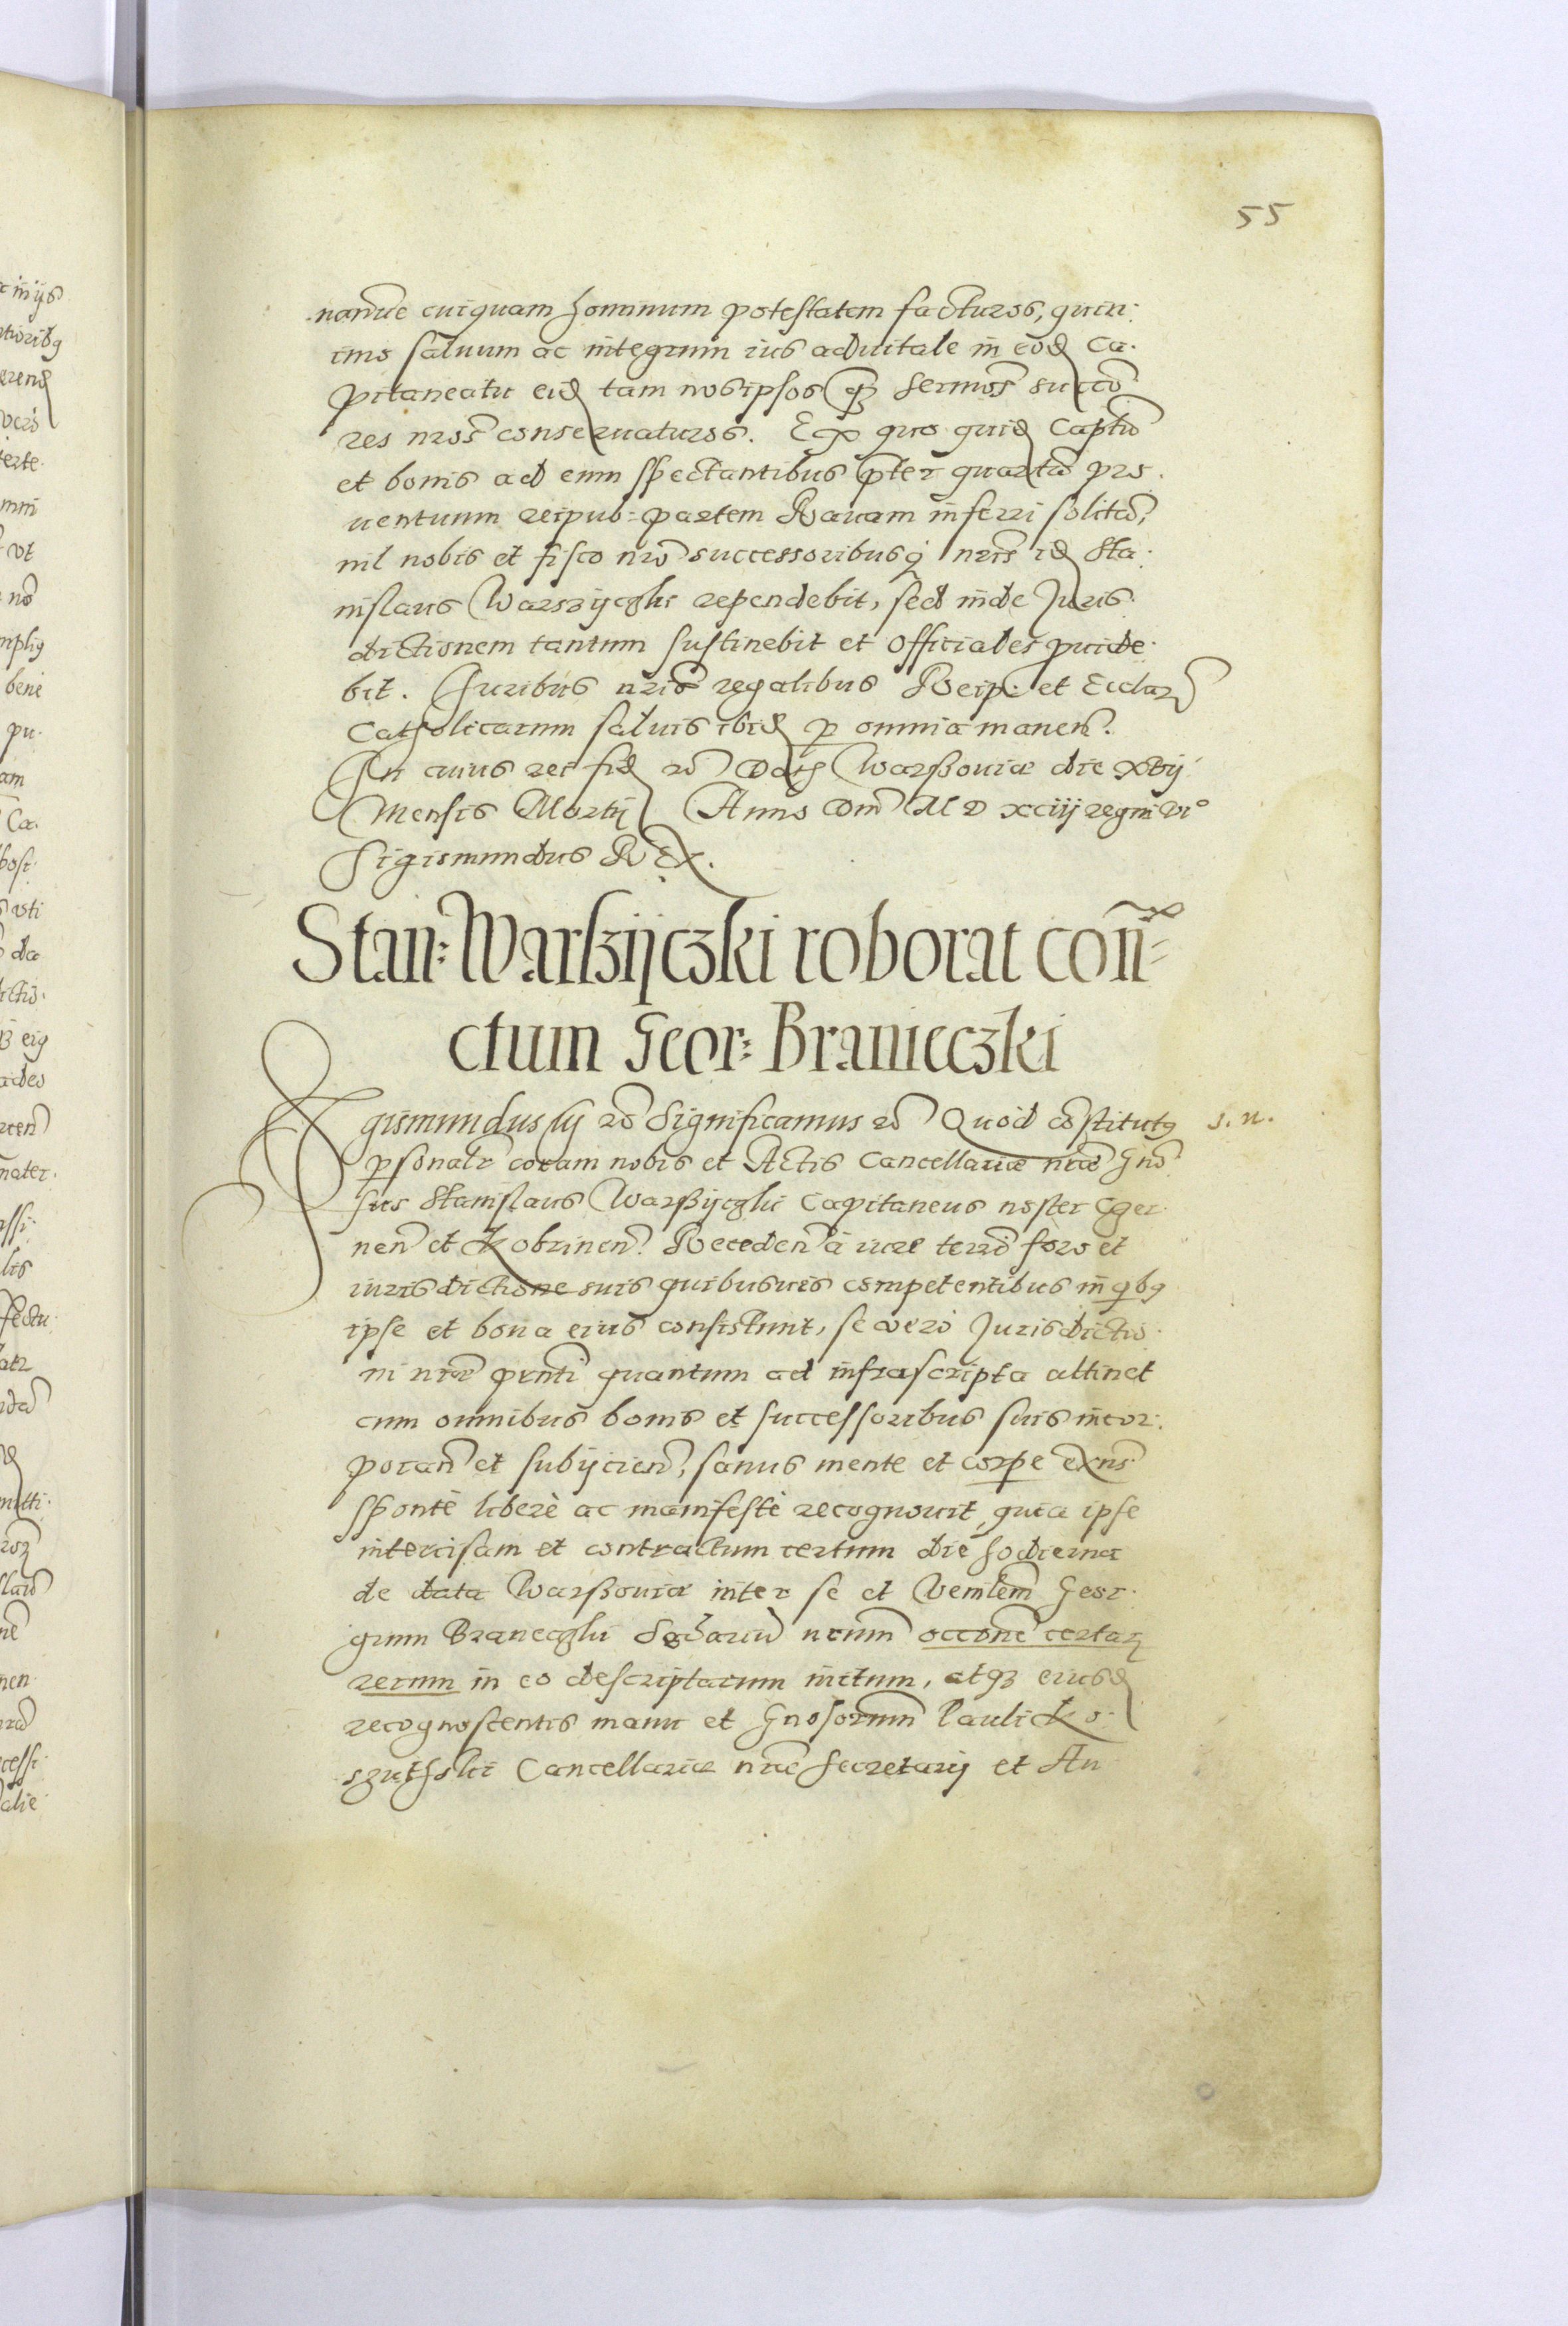 55
namve cuiquam hominum potestatem facturos, quin:
imo salvum ac integrum ius advitale in eod Ca.
pitaneatu eid tam nos ipsos qz sermos succo
res nros conservaturos. Ex quo quid Captu
et bonis ad eum spectantibus pter quartā pro.
ventuum reipub: partem Ravam inferri solitā,
nil nobis et fisco nro successoribusq nris id Sta.
nislaus Warszyczki rependebit, sed inde Juris.
dictionem tantum sustinebit et officiales pvide.
bit. Juribus nris regalibus Reip: et Ecclarz
Catholicarum salvis ibid p omnia manen.
In cuius rei fid rō Datz Warßoviæ die xvij
Mensis Martij Anno Dm M D xciij regni vi°
Sigismundus REX.
Stan: Warßijczki roborat con=
ctum Geor: Branieczki
Sigismundus iij rō Significamus rō Quod cōstitutg s. n.
psonalr coram nobis et Actis Cancellariæ nræ Gno
sus Stanislaus Warßijczki Capitaneus noster Czer
nen et Kobrinen. Receden à iure terrō foro et
iurisdictione suis quibusvis competentibus in qbg
ipse et bona eius consistunt, se vero Jurisdictio
ni nræ pnti quantum ad infrascripta attinet
cum omnibus bonis et successoribus suis incor:
poran et subijcien, sanus mente et corpe exns
sponte liberè ac manifestè recognovit, quia ipse
intercisam et contractum certum die hodierna
de data Warßoviæ inter se et Venlem Geor.
gium Braneczki nrum occone certarz
rerum in eo descriptarum initum, atqz eiusd
recognoscentis manu et Gnosorum Pauli Ko
szuthski Cancellariæ nræ Secretarij et An